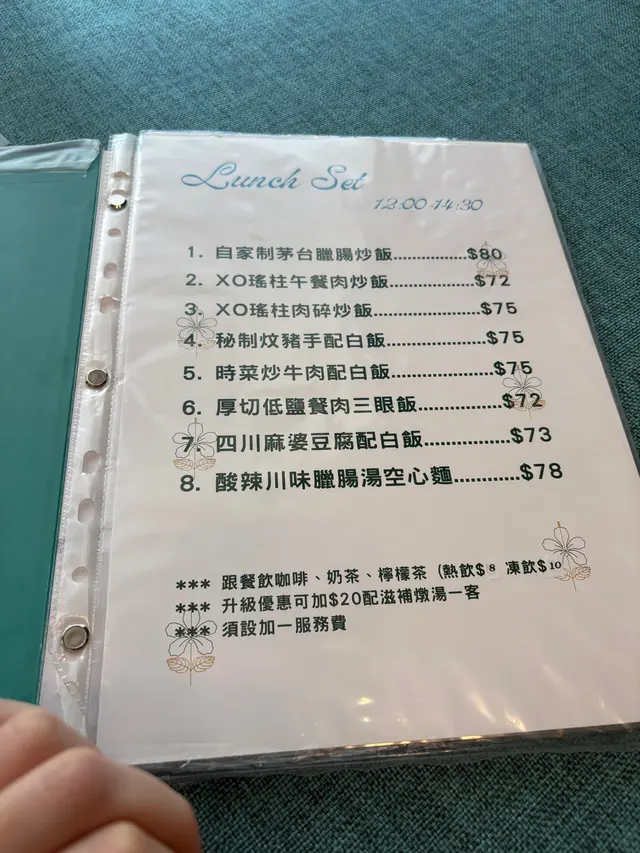 Lunch Set
12:00-14:30
1. 自家制茅台臘腸炒飯...............$80
2. XO瑤柱午餐肉炒飯...............$72
3. XO瑤柱肉碎炒飯...................$75
4. 秘制炆豬手配白飯..................$75
5. 時菜炒牛肉配白飯..................$75
6. 厚切低鹽餐肉三眼飯..............$72
7. 四川麻婆豆腐配白飯..............$73
8. 酸辣川味臘腸湯空心麵............$78
*** 跟餐飲咖啡、奶茶、檸檬茶 (熱飲$8 凍飲$10
*** 升級優惠可加$20配滋補燉湯一客
*** 須設加一服務費